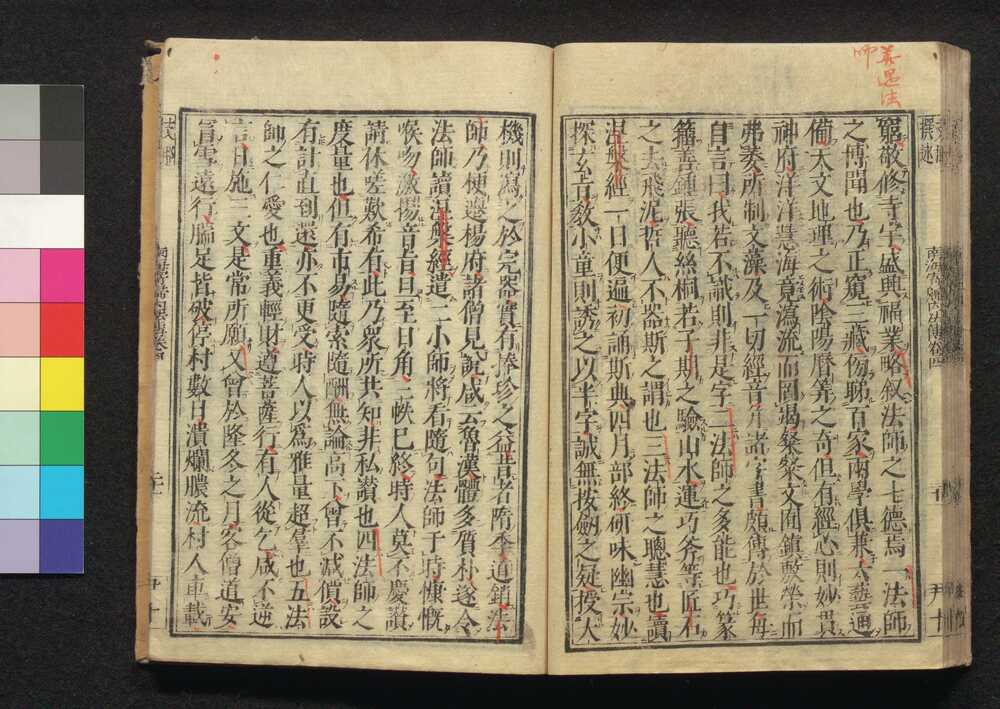 善遇法
師
窮敬修寺宇盛興福業略叙法師之七德焉一法師
之博聞也乃正窺三藏傍睇百家兩學俱兼六藝通
備天文地理之術陰陽曆筭之奇但有經心則妙貫
神府洋洋慧海竟瀉流而罔竭粲粲文囿鎮敷榮而
弗萎所制文藻及一切經音并諸字書頗傳於世每
自言曰我若不識則非是字二法師之多能也巧篆
籀善鍾張聽絲桐若子期之驗山水運巧斧等匠石
之去飛泥哲人不器斯之謂也三法師之聰慧也讀
涅槃經一日便遍初誦斯典四月部終研味幽宗妙
探玄旨教小童則誘之以半字誠無按劒之疑授大
機則瀉之於完器實有捧珍之益昔者隋季道銷法
師乃便遷楊府諸僧見說咸云魯漢體多質朴遂令
法師讀涅槃經遣二小師將看隨句法師于時慷慨
喉吻激揚音旨旦至日角三帙已終時人莫不慶讃
請休嗟歎希有此乃衆所共知非私讃也四法師之
度量也但有市易隨索隨酬無論高下曾不減價設
有計直到還亦不更受時人以爲雅量超羣也五法
師之仁愛也重義輕財遵菩薩行有人從乞咸不逆
言日施三文是常所願又曾於隆冬之月客僧道安
冒雪遠行腨足皆破停村數日潰爛膿流村人車載